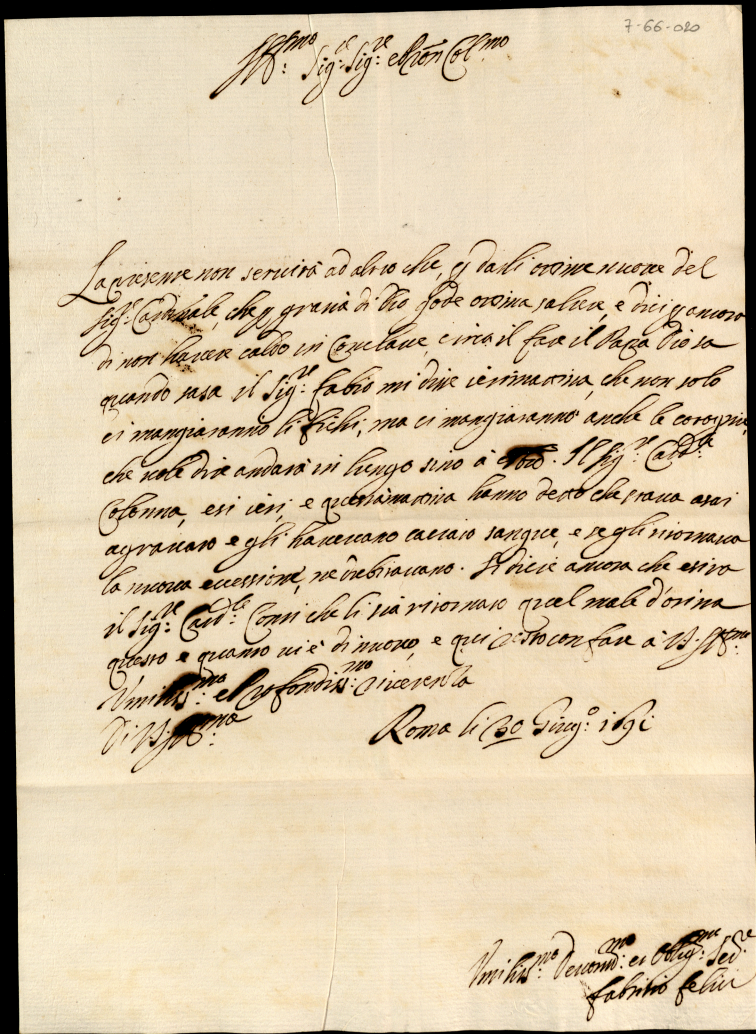 7-66-020
Ill:mo Sig:re Sig:re e Pron Col:mo
La presente non servirà ad altro che p darli ottime nuove del
Sig:re Cardinale, che p gratia di Dio gode ottima salute, e dice p ancora
di non havere caldo in Conclave, circa il fare il Papa Dio sa
quando sarà il Sig:re Fabio mi disse ierimattina, che non solo
ci mangiaranno li fichi, ma ci mangiaranno anche le
che vole dire andarà in luengo sino à . Il Sig:re Card:le
Colonna, eri ieri, e questa mattina hanno detto che stava assai
agravato e gli havevano cacciato sangue, e se gli ritornava
la nuova accessione, ne dubitavano. Si dicie ancora che
il Sig:re Card:le Conti che li sia ritornato quel male d'orina
questo e quanto vi è di nuovo, e qui resto con fare à V.S. Ill:ma
Umiliss:ma e profondiss:mo riverenza
Di V.S. Ill:ma
Roma li 30 Giug:o 1691
Umiliss:mo Devotiss:mo et Oblig:mo Ser:re
Fabritio Felici